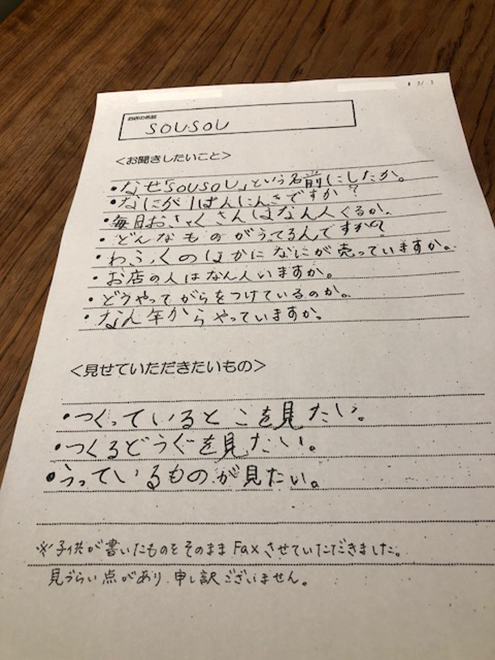 お店の名前
SOUSOU
<お聞きしたいこと>
・なぜ「SOUSOU」という名前にしたか。
・なにが1ばんにんきですか?
・毎日おきゃくさんはなん人くるか。
・どんなものがうってるんですか?
・わふくのほかになにが売っていますか。
・お店の人はなん人いますか。
・どうやってがらをつけているのか。
・なん年からやっていますか。
<見せていただきたいもの>
・つくっているとこを見たい。
・つくるどうぐを見たい。
・うっているものが見たい。
※子供が書いたものをそのままFaxさせていただきました。
見づらい点があり、申し訳ございません。